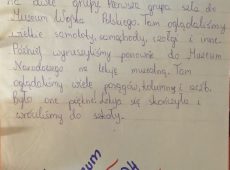 na dwie grupy. Pierwsza grupa szła do
Muzeum Wojska Polskiego. Tam oglądaliśmy
wielkie samoloty, samochody, czołgi i inne.
Później wyruszyliśmy ponownie do Muzeum
Narodowego na lekcję muzealną. Tam
oglądaliśmy wiele posągów, kolumny i ozd.
Było one piękne. Lekcja się skończyła i
wróciliśmy do szkoły.